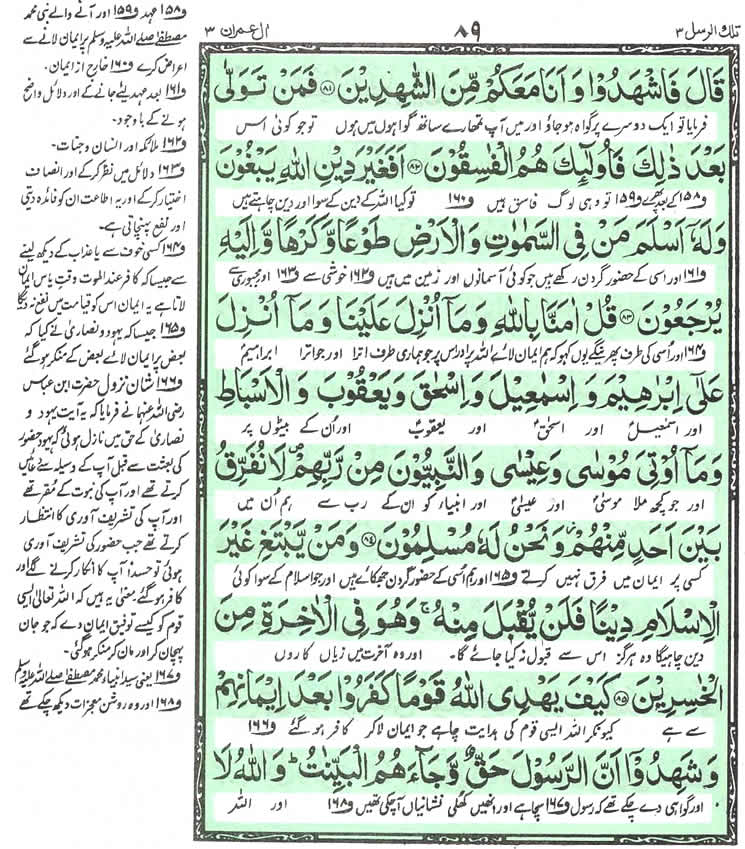 تلك الرسل ٣
٨٩
آل عمران ٣
قَالَ فَاشْهَدُوْا وَ اَنَا مَعَكُمْ مِّنَ الشّٰهِدِیْنَ ﴿۸۱﴾ فَمَنْ تَوَلّٰى
فرمایا تو ایک دوسرے پر گواہ ہو جاؤ اور میں آپ تمہارے ساتھ گواہوں میں ہوں تو جو کوئی اس
بَعْدَ ذٰلِكَ فَاُولٰٓىٕكَ هُمُ الْفٰسِقُوْنَ ﴿۸۲﴾ اَفَغَیْرَ دِیْنِ اللّٰهِ یَبْغُوْنَ
ف۱۵۸ کے بعد پھرے ف۱۵۹ تو وہی لوگ فاسق ہیں ف۱۶۰ تو کیا اللہ کے دین کے سوا اور دین چاہتے ہیں
وَ لَهٗۤ اَسْلَمَ مَنْ فِی السَّمٰوٰتِ وَ الْاَرْضِ طَوْعًا وَّ كَرْهًا وَّ اِلَیْهِ
ف۱۶۱ اور اسی کے حضور گردن رکھے ہیں جو کوئی آسمانوں اور زمین میں ہیں ف۱۶۲ خوشی سے ف۱۶۳ اور مجبوری سے
یُرْجَعُوْنَ ﴿۸۳﴾ قُلْ اٰمَنَّا بِاللّٰهِ وَ مَاۤ اُنْزِلَ عَلَیْنَا وَ مَاۤ اُنْزِلَ
ف۱۶۴ اور اسی کی طرف پھریں گے یوں کہو کہ ہم ایمان لائے اللہ پر اور اس پر جو ہماری طرف اترا اور جو اترا ابراہیم
عَلٰۤى اِبْرٰهِیْمَ وَ اِسْمٰعِیْلَ وَ اِسْحٰقَ وَ یَعْقُوْبَ وَ الْاَسْبَاطِ
اور اسمٰعیل اور اسحٰق اور یعقوب اور اُن کے بیٹوں پر
وَ مَاۤ اُوْتِیَ مُوْسٰى وَ عِیْسٰى وَ النَّبِیُّوْنَ مِنْ رَّبِّهِمْ۪ لَا نُفَرِّقُ
اور جو کچھ ملا موسیٰ اور عیسیٰ اور انبیاء کو ان کے رب سے ہم اُن میں
بَیْنَ اَحَدٍ مِّنْهُمْ٘ وَ نَحْنُ لَهٗ مُسْلِمُوْنَ ﴿۸۴﴾ وَ مَنْ یَّبْتَغِ غَیْرَ
کسی پر ایمان میں فرق نہیں کرتے ف۱۶۵ اور ہم اُسی کے حضور گردن جھکائے ہیں اور جو اسلام کے سوا کوئی
الْاِسْلَامِ دِیْنًا فَلَنْ یُّقْبَلَ مِنْهُۚ وَ هُوَ فِی الْاٰخِرَةِ مِنَ
دین چاہیگا وہ ہرگز اس سے قبول نہ کیا جائے گا۔ اور وہ آخرت میں زیاں کاروں
الْخٰسِرِیْنَ ﴿۸۵﴾ كَیْفَ یَهْدِی اللّٰهُ قَوْمًا كَفَرُوْا بَعْدَ اِیْمَانِهِمْ
سے ہے کیونکر اللہ ایسی قوم کی ہدایت چاہے جو ایمان لا کر کافر ہو گئے ف۱۶۶
وَ شَهِدُوْۤا اَنَّ الرَّسُوْلَ حَقٌّ وَّ جَآءَهُمُ الْبَیِّنٰتُؕ وَ اللّٰهُ لَا
اور گواہی دے چکے تھے کہ رسول ف۱۶۷ سچا ہے اور انھیں کھلی نشانیاں آ چکی تھیں ف۱۶۸ اور اللہ
ف۱۵۸ عہد ف۱۵۹ اور آنے والے نبی محمد
مصطفٰے صلے اللہ علیہ وسلم پر ایمان لانے سے
اعراض کرے ف۱۶۰ خارج از ایمان۔
ف۱۶۱ بعد عہد لئے جانے کے اور دلائل واضح
ہونے کے باوجود۔
ف۱۶۲ ملائکہ اور انسان و جنات۔
ف۱۶۳ دلائل میں نظر کرکے اور انصاف
اختیار کرکے اور یہ اطاعت ان کو فائدہ دیتی
اور نفع پہنچاتی ہے۔
ف۱۶۴ کسی خوف سے یا عذاب کے دیکھ لینے
سے جیسا کہ کافر عند الموت وقتِ یاس ایمان
لاتا ہے یہ ایمان اس کو قیامت میں نفع نہ دیگا
ف۱۶۵ جیسا کہ یہود و نصارٰی نے کیا کہ
بعض پر ایمان لائے بعض کے منکر ہو گئے
ف۱۶۶ شان نزول حضرت ابن عباس
رضی اللہ عنہما نے فرمایا کہ یہ آیت یہود و
نصارٰی کے حق میں نازل ہوئی کہ یہود حضور
کی بعثت سے قبل آپ کے وسیلہ سے دعائیں
کرتے تھے اور آپ کی نبوت کے مُقر تھے
اور آپ کی تشریف آوری کا انتظار
کرتے تھے جب حضور کی تشریف آوری
ہوئی تو حسداً آپ کا انکار کرنے لگے اور
کافر ہو گئے معنٰی یہ ہیں کہ اللہ تعالٰی ایسی
قوم کو کیسے توفیق ایمان دے کہ جو جان
پہچان کر اور مان کر منکر ہو گئی۔
ف۱۶۷ یعنی سید انبیاء محمد مصطفٰے صلے اللہ علیہ وسلم
ف۱۶۸ اور وہ روشن معجزات دیکھ چکے تھے